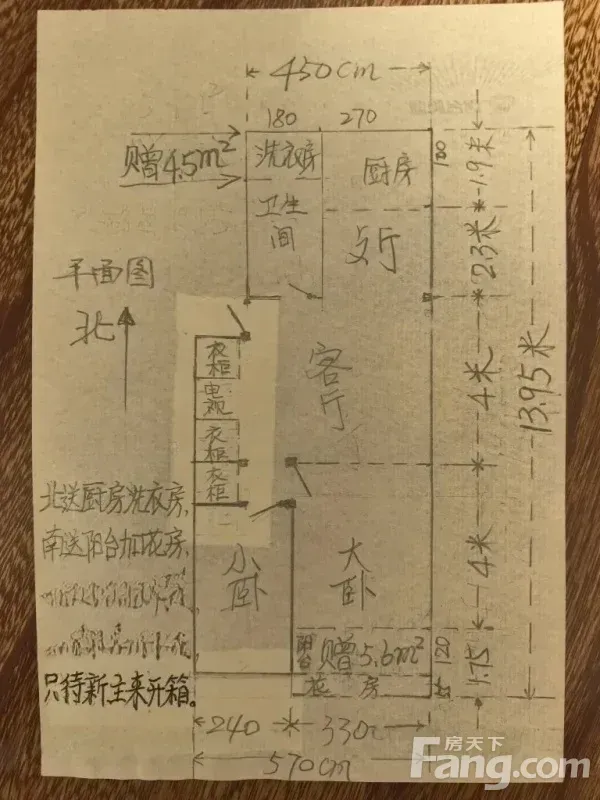 450cm
180
270
赠4.5m²
洗衣房
厨房
180
1.9米
卫生间
文厅
2.3米
平面图
北
衣柜
电视
衣柜
衣柜
客厅
4米
13.95米
北送厨房洗衣房,
南送阳台加花房,
只待新主来开箱。
小卧
大卧
4米
阳台
赠5.6m²
120
1.75
花房
240
330
570cm
房天下
Fang.com